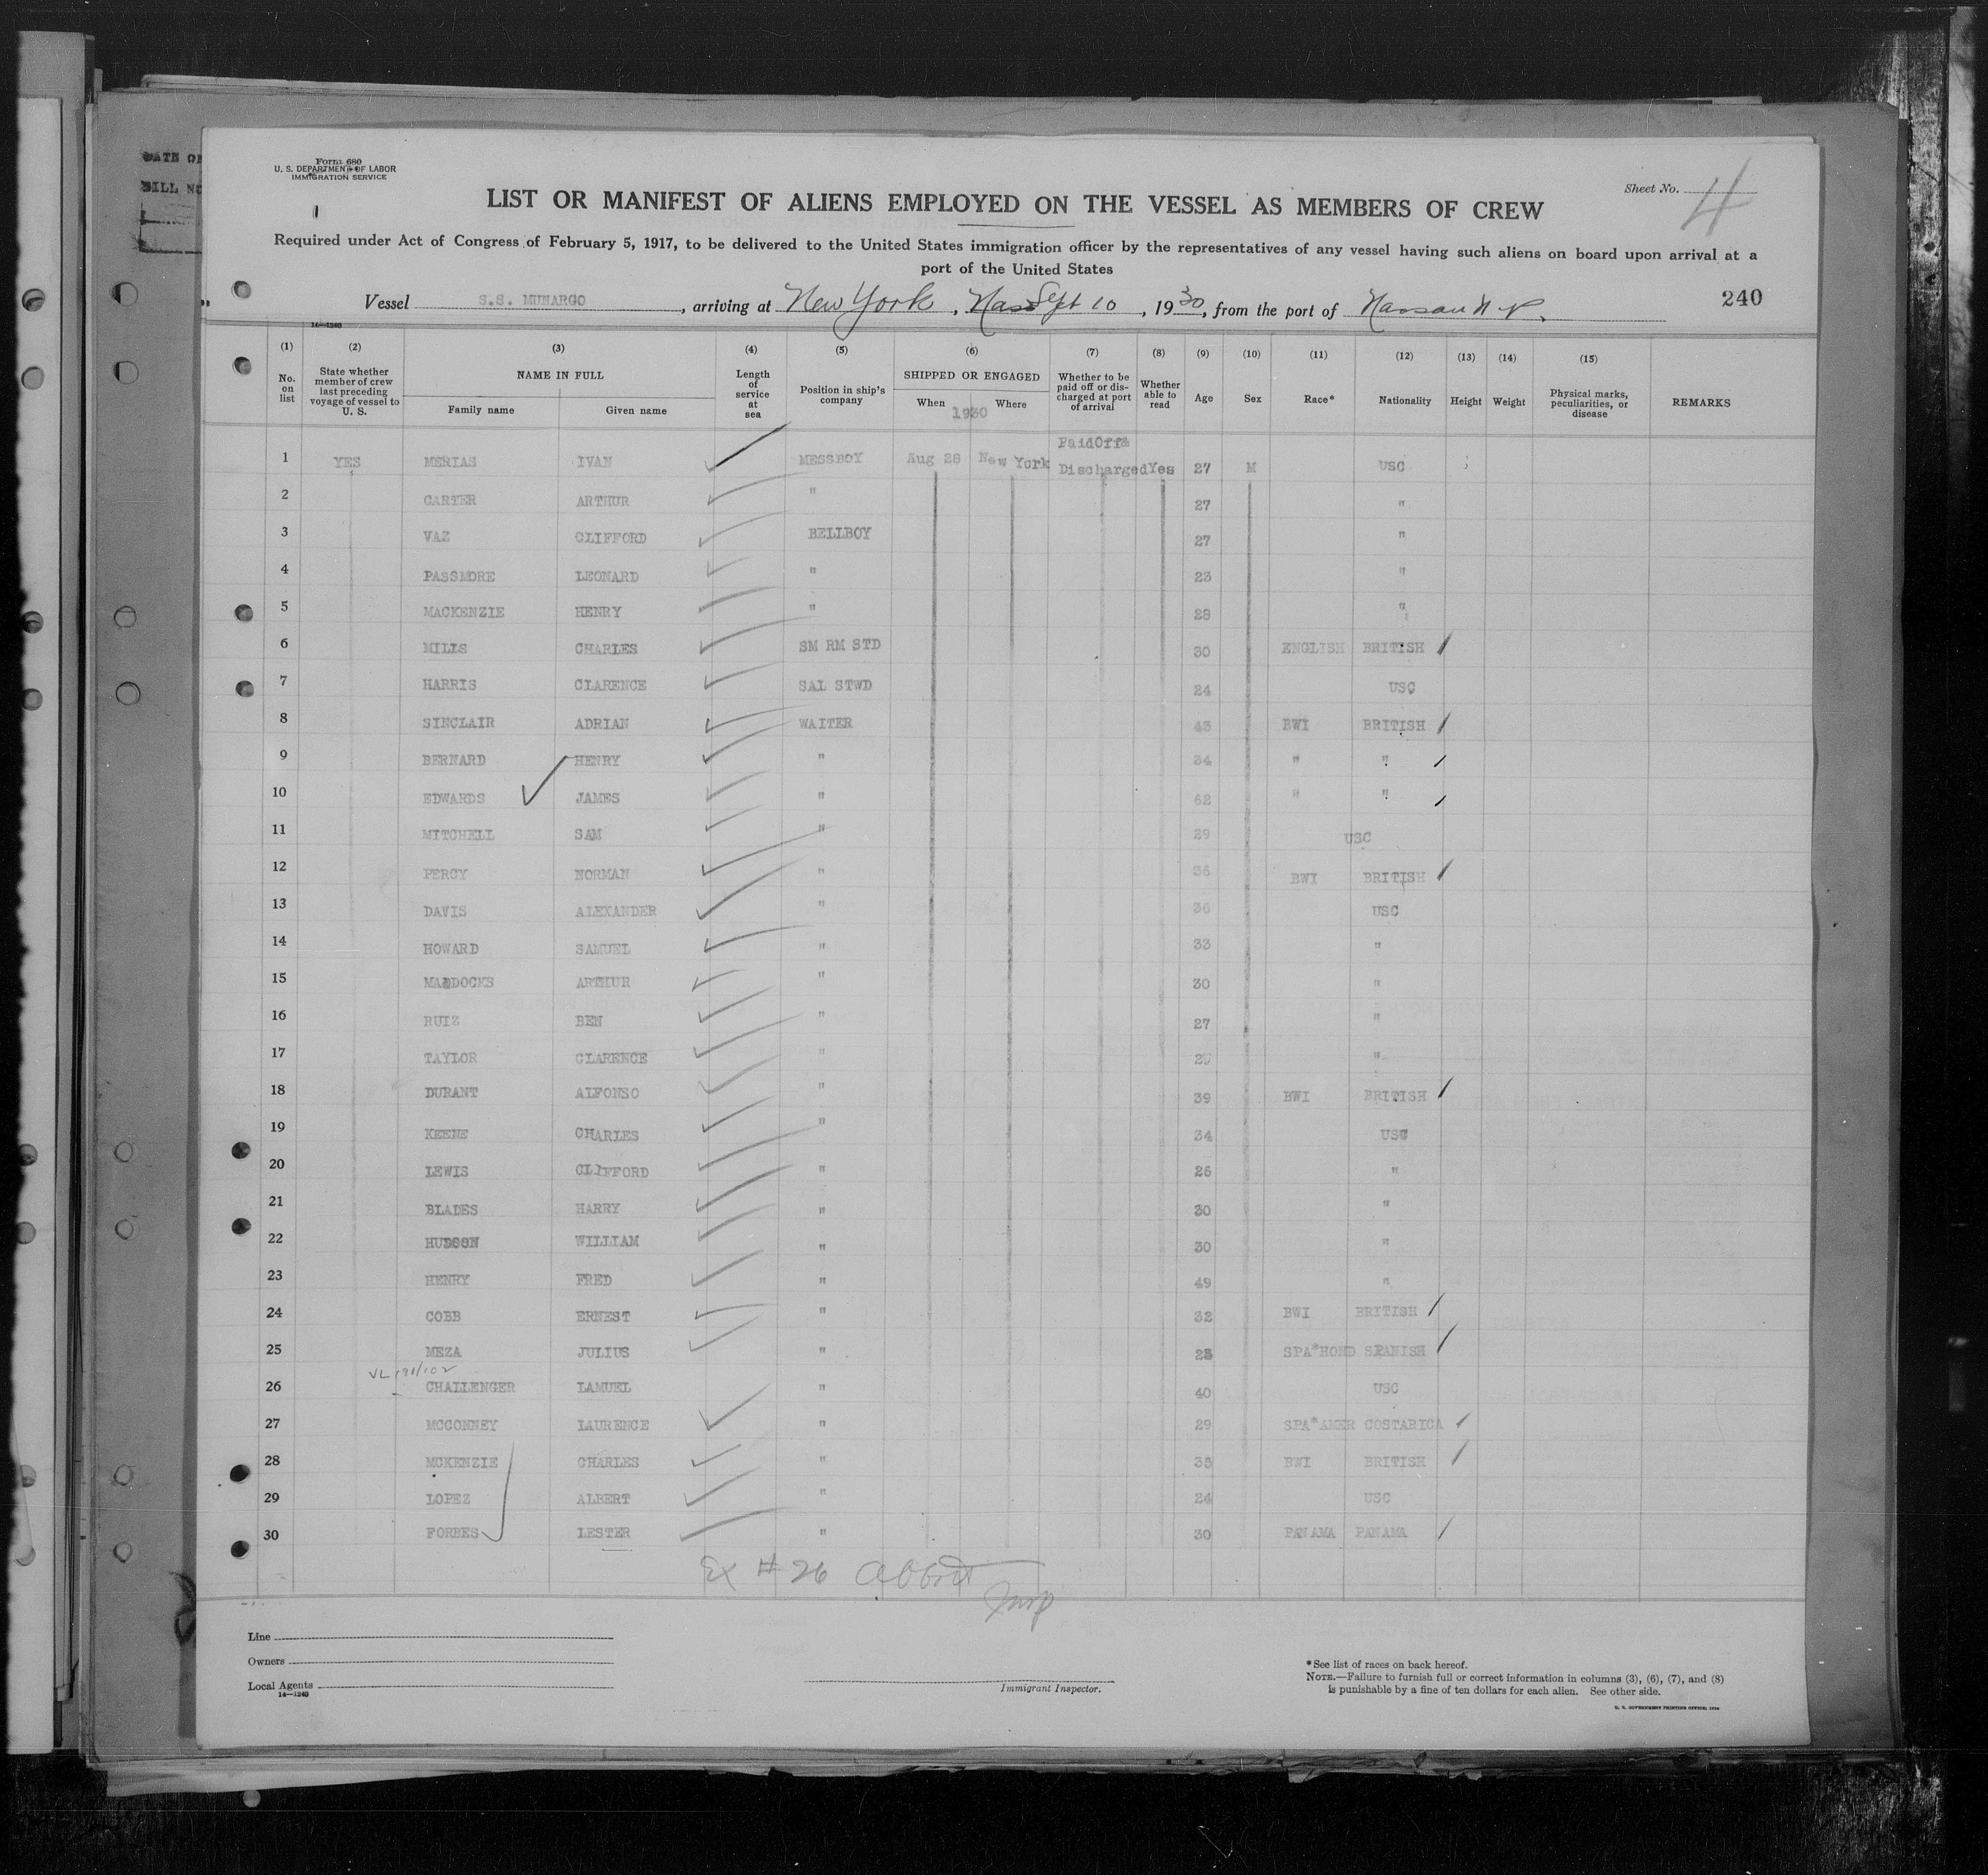 DATE OF
BILL NO
Form 680
U. S. DEPARTMENT OF LABOR
IMMIGRATION SERVICE
Sheet No. 4
LIST OR MANIFEST OF ALIENS EMPLOYED ON THE VESSEL AS MEMBERS OF CREW
Required under Act of Congress of February 5, 1917, to be delivered to the United States immigration officer by the representatives of any vessel having such aliens on board upon arrival at a
port of the United States
Vessel S.S. MUNARGO, arriving at New York, Sept 10, 1930, from the port of Nassau N.P.
240
14—1240
(1) (2) (3) (4) (5) (6) (7) (8) (9) (10) (11) (12) (13) (14) (15)
No. on list State whether member of crew last preceding voyage of vessel to U. S. NAME IN FULL Family name Given name Length of service at sea Position in ship's company SHIPPED OR ENGAGED When Where 1930 Whether to be paid off or discharged at port of arrival Whether able to read Age Sex Race* Nationality Height Weight Physical marks, peculiarities, or disease REMARKS
PaidOff&
1 YES MERIAS IVAN MESSBOY Aug 28 New York Discharged Yes 27 M USC
2 CARTER ARTHUR " 27 "
3 VAZ CLIFFORD BELLBOY 27 "
4 PASSMORE LEONARD " 23 "
5 MACKENZIE HENRY " 28 "
6 MILLS CHARLES SM RM STD 30 ENGLISH BRITISH
7 HARRIS CLARENCE SAL STWD 24 USC
8 SINCLAIR ADRIAN WAITER 43 BWI BRITISH
9 BERNARD HENRY " 34 " "
10 EDWARDS JAMES " 62 " "
11 MITCHELL SAM " 29 USC
12 PERCY NORMAN " 36 BWI BRITISH
13 DAVIS ALEXANDER " 36 USC
14 HOWARD SAMUEL " 33 "
15 MADDOCKS ARTHUR " 30 "
16 RUIZ BEN " 27 "
17 TAYLOR CLARENCE " "
18 DURANT ALFONSO " 39 BWI BRITISH
19 KEENE CHARLES " 34 USC
20 LEWIS CLIFFORD " 26 "
21 BLADES HARRY " 30 "
22 HUDSON WILLIAM " 30 "
23 HENRY FRED " 49 "
24 COBB ERNEST " 32 BWI BRITISH
25 MEZA JULIUS " SPA*HOND SPANISH
26 CHALLENGER LAMUEL " 40 USC
27 MCCONNEY LAURENCE " 29 SPA*AMER COSTARICA
28 MCKENZIE CHARLES " 35 BWI BRITISH
29 LOPEZ ALBERT " 24 USC
30 FORBES LESTER " 30 PANAMA PANAMA
Ex # 26 Abbott
Insp
Line
Owners
Local Agents
14—1240
Immigrant Inspector.
*See list of races on back hereof.
NOTE.—Failure to furnish full or correct information in columns (3), (6), (7), and (8)
is punishable by a fine of ten dollars for each alien. See other side.